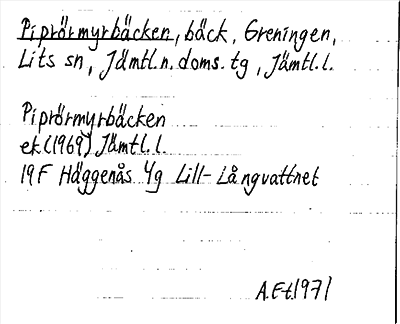 Piprörmyrbäcken, bäck, Greningen,
Lits sn, Jämtl.n.doms.tg, Jämtl.l.
Piprörmyrbäcken
ek(1969) Jämtl.l.
19F Häggenås 4g Lill-Långvattnet
A.E-t.1971